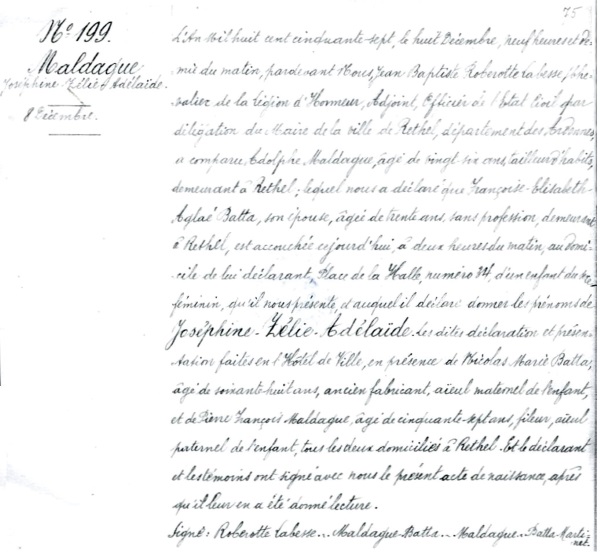 75
N° 199.
Maldague
Joséphine-Zélie-Adélaïde.
8 Décembre.
L'An Mil huit cent cinquante-sept, le huit Décembre, neuf heures et de-
mie du matin, pardevant Nous, Jean Baptiste Roberotte Labesse, Che-
valier de la Légion d'Honneur, Adjoint, Officier de l'Etat Civil par
délégation du Maire de la ville de Rethel, département des Ardennes,
a comparu Adolphe Maldague, âgé de vingt six ans, tailleur d'habits,
demeurant à Rethel; lequel nous a déclaré que Françoise-Elisabeth-
Aglaé Batta, son épouse, âgée de trente ans, sans profession, demeurant
à Rethel, est accouchée cejourd'hui, à deux heures du matin, au domi-
cile de lui déclarant, Place de la Halle, numéro d'un enfant du sexe
féminin, qu'il nous présente, et auquel il déclare donner les prénoms de
Joséphine-Zélie-Adélaïde. Les dites déclaration et présen-
tation faites en l'Hôtel de Ville, en présence de Nicolas Marie Batta,
âgé de soixante-huit ans, ancien fabricant, aïeul maternel de l'enfant,
et de Pierre François Maldague, âgé de cinquante-sept ans, fileur, aïeul
paternel de l'enfant, tous les deux domiciliés à Rethel. Et le déclarant
et les témoins ont signé avec nous le présent acte de naissance, après
qu'il leur en a été donné lecture.
Signé: Roberotte Labesse... Maldague-Batta... Maldague... Batta-Marti-
net.